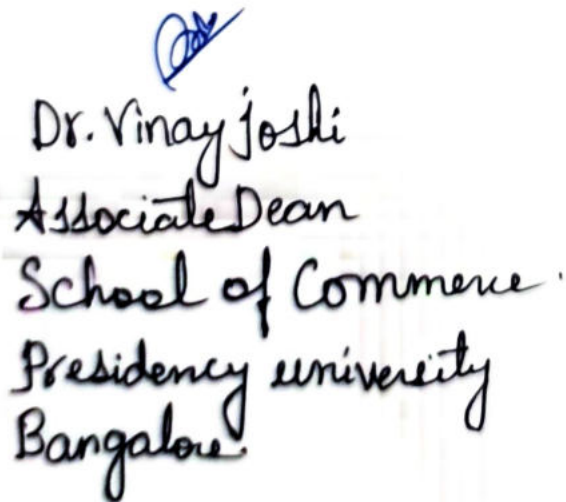 Dr. Vinay Joshi
Associate Dean
School of Commerce.
Presidency university
Bangalore.